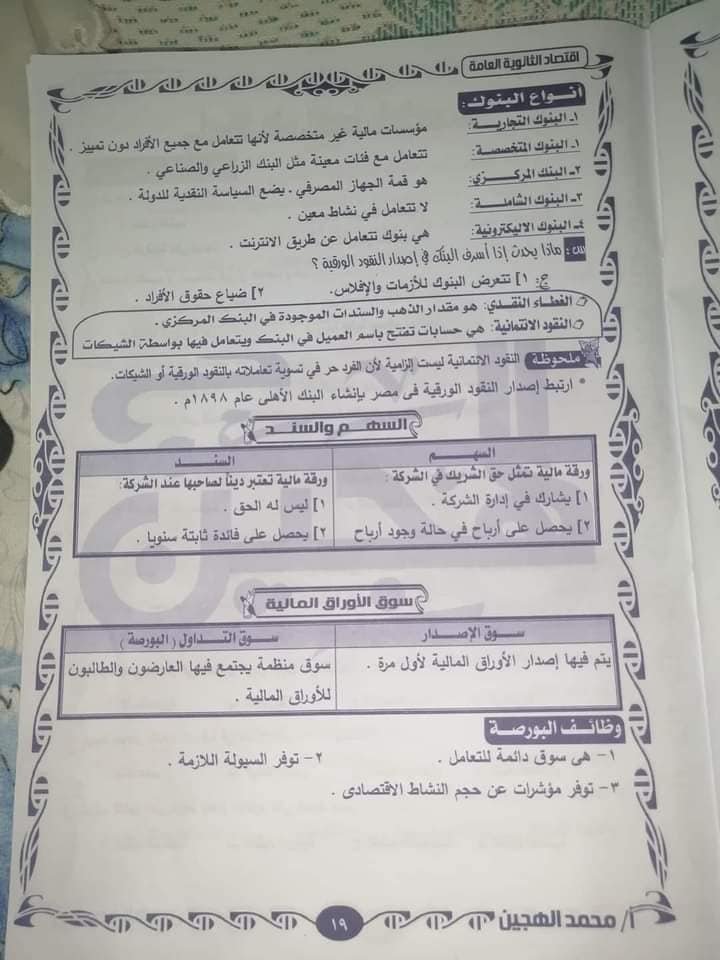 اقتصاد الثانوية العامة
أنواع البنوك:
١ـ البنوك التجارية: مؤسسات مالية غير متخصصة لأنها تتعامل مع جميع الأفراد دون تمييز .
١ـ البنوك المتخصصة: تتعامل مع فئات معينة مثل البنك الزراعي والصناعي .
٢ـ البنك المركزي: هو قمة الجهاز المصرفي . يضع السياسة النقدية للدولة .
٣ـ البنوك الشاملة: لا تتعامل في نشاط معين .
٤ـ البنوك الاليكترونية: هي بنوك تتعامل عن طريق الانترنت .
س: ماذا يحدث إذا أسرف البنك في إصدار النقود الورقية ؟
ج: ١] تتعرض البنوك للأزمات والإفلاس. ٢] ضياع حقوق الأفراد .
الغطاء النقدي: هو مقدار الذهب والسندات الموجودة في البنك المركزي .
النقود الائتمانية: هي حسابات تفتح باسم العميل في البنك ويتعامل فيها بواسطة الشيكات
ملحوظة النقود الائتمانية ليست إلزامية لأن الفرد حر في تسوية تعاملاته بالنقود الورقية أو الشيكات.
* ارتبط إصدار النقود الورقية فى مصر بإنشاء البنك الأهلى عام ١٨٩٨م .
السهم والسند
السهم السند
ورقة مالية تمثل حق الشريك في الشركة : ورقة مالية تعتبر ديناً لصاحبها عند الشركة:
١] يشارك في إدارة الشركة . ١] ليس له الحق .
٢] يحصل على أرباح في حالة وجود أرباح ٢] يحصل على فائدة ثابتة سنويا .
سوق الأوراق المالية
سوق الإصدار سوق التداول ( البورصة )
يتم فيها إصدار الأوراق المالية لأول مرة . سوق منظمة يجتمع فيها العارضون والطالبون
للأوراق المالية .
وظائف البورصة
١- هى سوق دائمة للتعامل . ٢- توفر السيولة اللازمة .
٣- توفر مؤشرات عن حجم النشاط الاقتصادى .
أ/ محمد الهجين
١٩